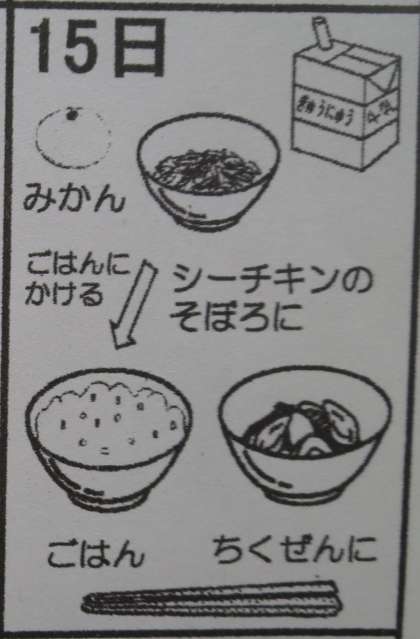 15日
ぎゅうにゅう
みかん
シーチキンの
そぼろに
ごはんに
かける
ごはん
ちくぜんに